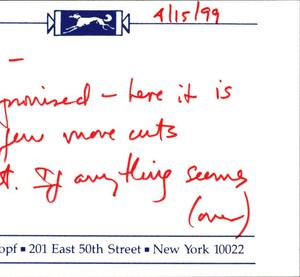 4/15/99
–
promised – here it is
few more cuts
t. If anything seems
(over)
opf ▪ 201 East 50th Street ▪ New York 10022